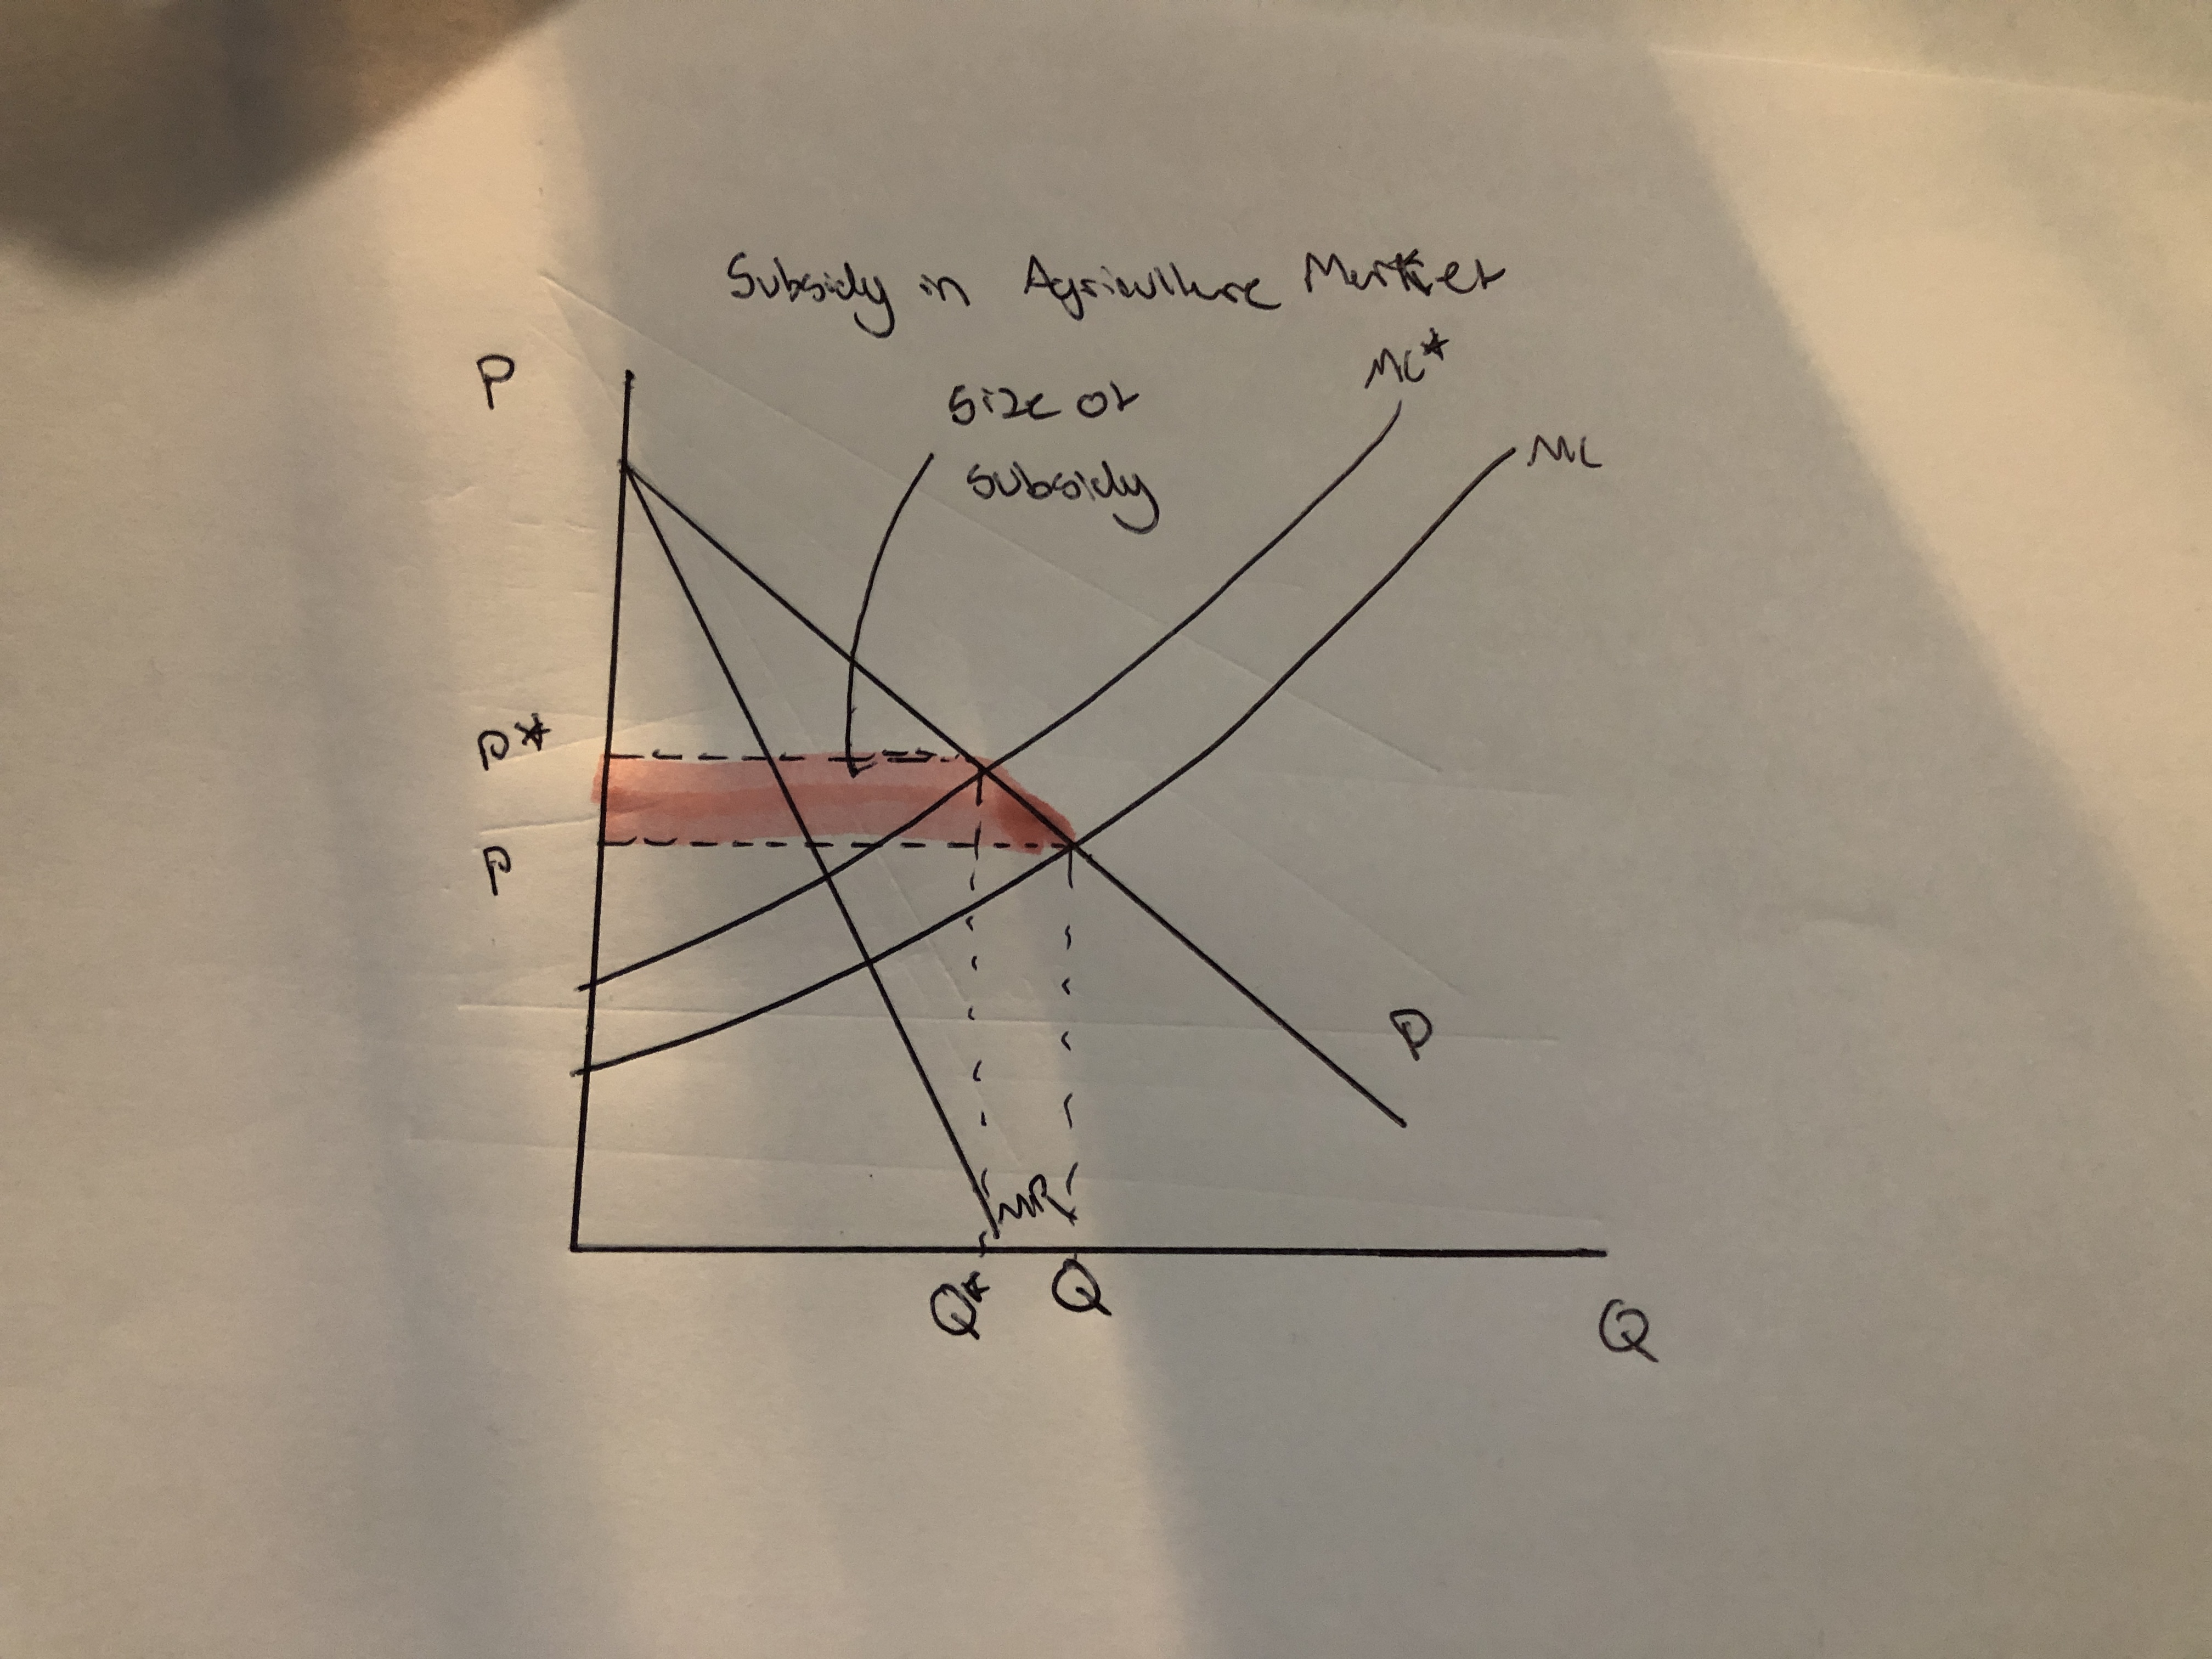 Subsidy in Agriculture Market
P
Size of
subsidy
MC*
MC
P*
P
D
MR
Q*
Q
Q